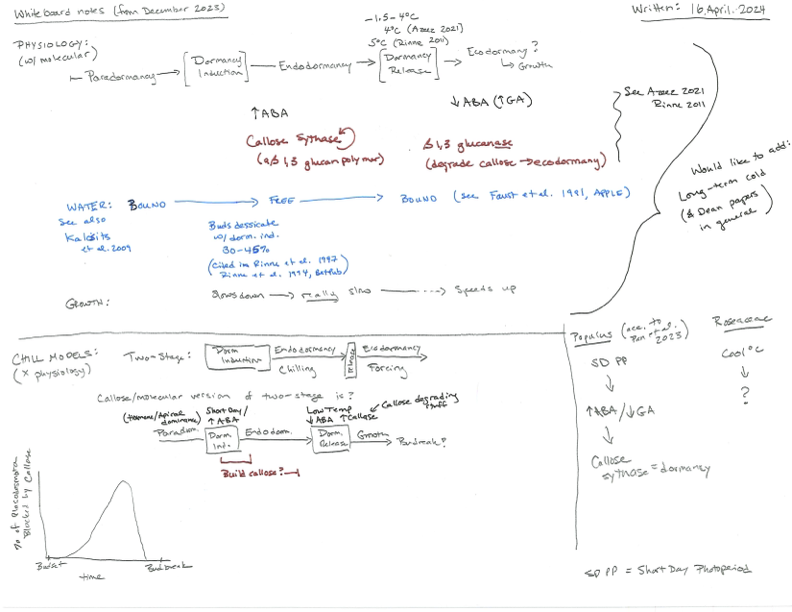 Whiteboard notes (from December 2023)
Written: 16 April 2024
PHYSIOLOGY:
(w/ molecular)
-1.5-4°C
4°C (Azeez 2021)
5°C (Rinne 2011)
Paradormancy → [Dormancy Induction] — Endodormancy → [Dormancy Release] → Ecodormancy?
↳ Growth
↑ABA
↓ABA (↑GA)
See Azeez 2021
Rinne 2011
Callose Sythase
(a β 1,3 glucan polymer)
β 1,3 glucanase
(degrade callose → ecodormancy)
Would like to add:
Long-term cold
(& Dean papers
in general)
WATER: BOUND → FREE → BOUND (see Faust et al. 1991, APPLE)
See also
Kalcsits
et al. 2009
Buds dessicate
w/ dorm. ind.
30-45%
(Cited in Rinne et al. 1997
Rinne et al. 1994, Betpub)
GROWTH:
Slows down → really slow → Speeds up
CHILL MODELS:
(x physiology)
Two-Stage:
Dorm
Induction
Endodormancy
Chilling
Release
Ecodormancy
Forcing
Callose/molecular version of two-stage is?
(Hormone/Apical
dominance)
Short Day/
↑ABA
Low Temp
↓ABA ↑Callose
Callose degrading
stuff
Paradorm.
Dorm.
Ind.
Endodorm.
Dorm.
Release
Growth
Budbreak?
Build callose?
% of Plasmodesmata
Blocked by Callose
Budset
time
Budbreak
Populus (acc. to
et al.
2023)
SD PP
↓
↑ABA/↓GA
↓
Callose
sythase = dormancy
Rosaceae
Cool °C
↓
?
SD PP = Short Day Photoperiod